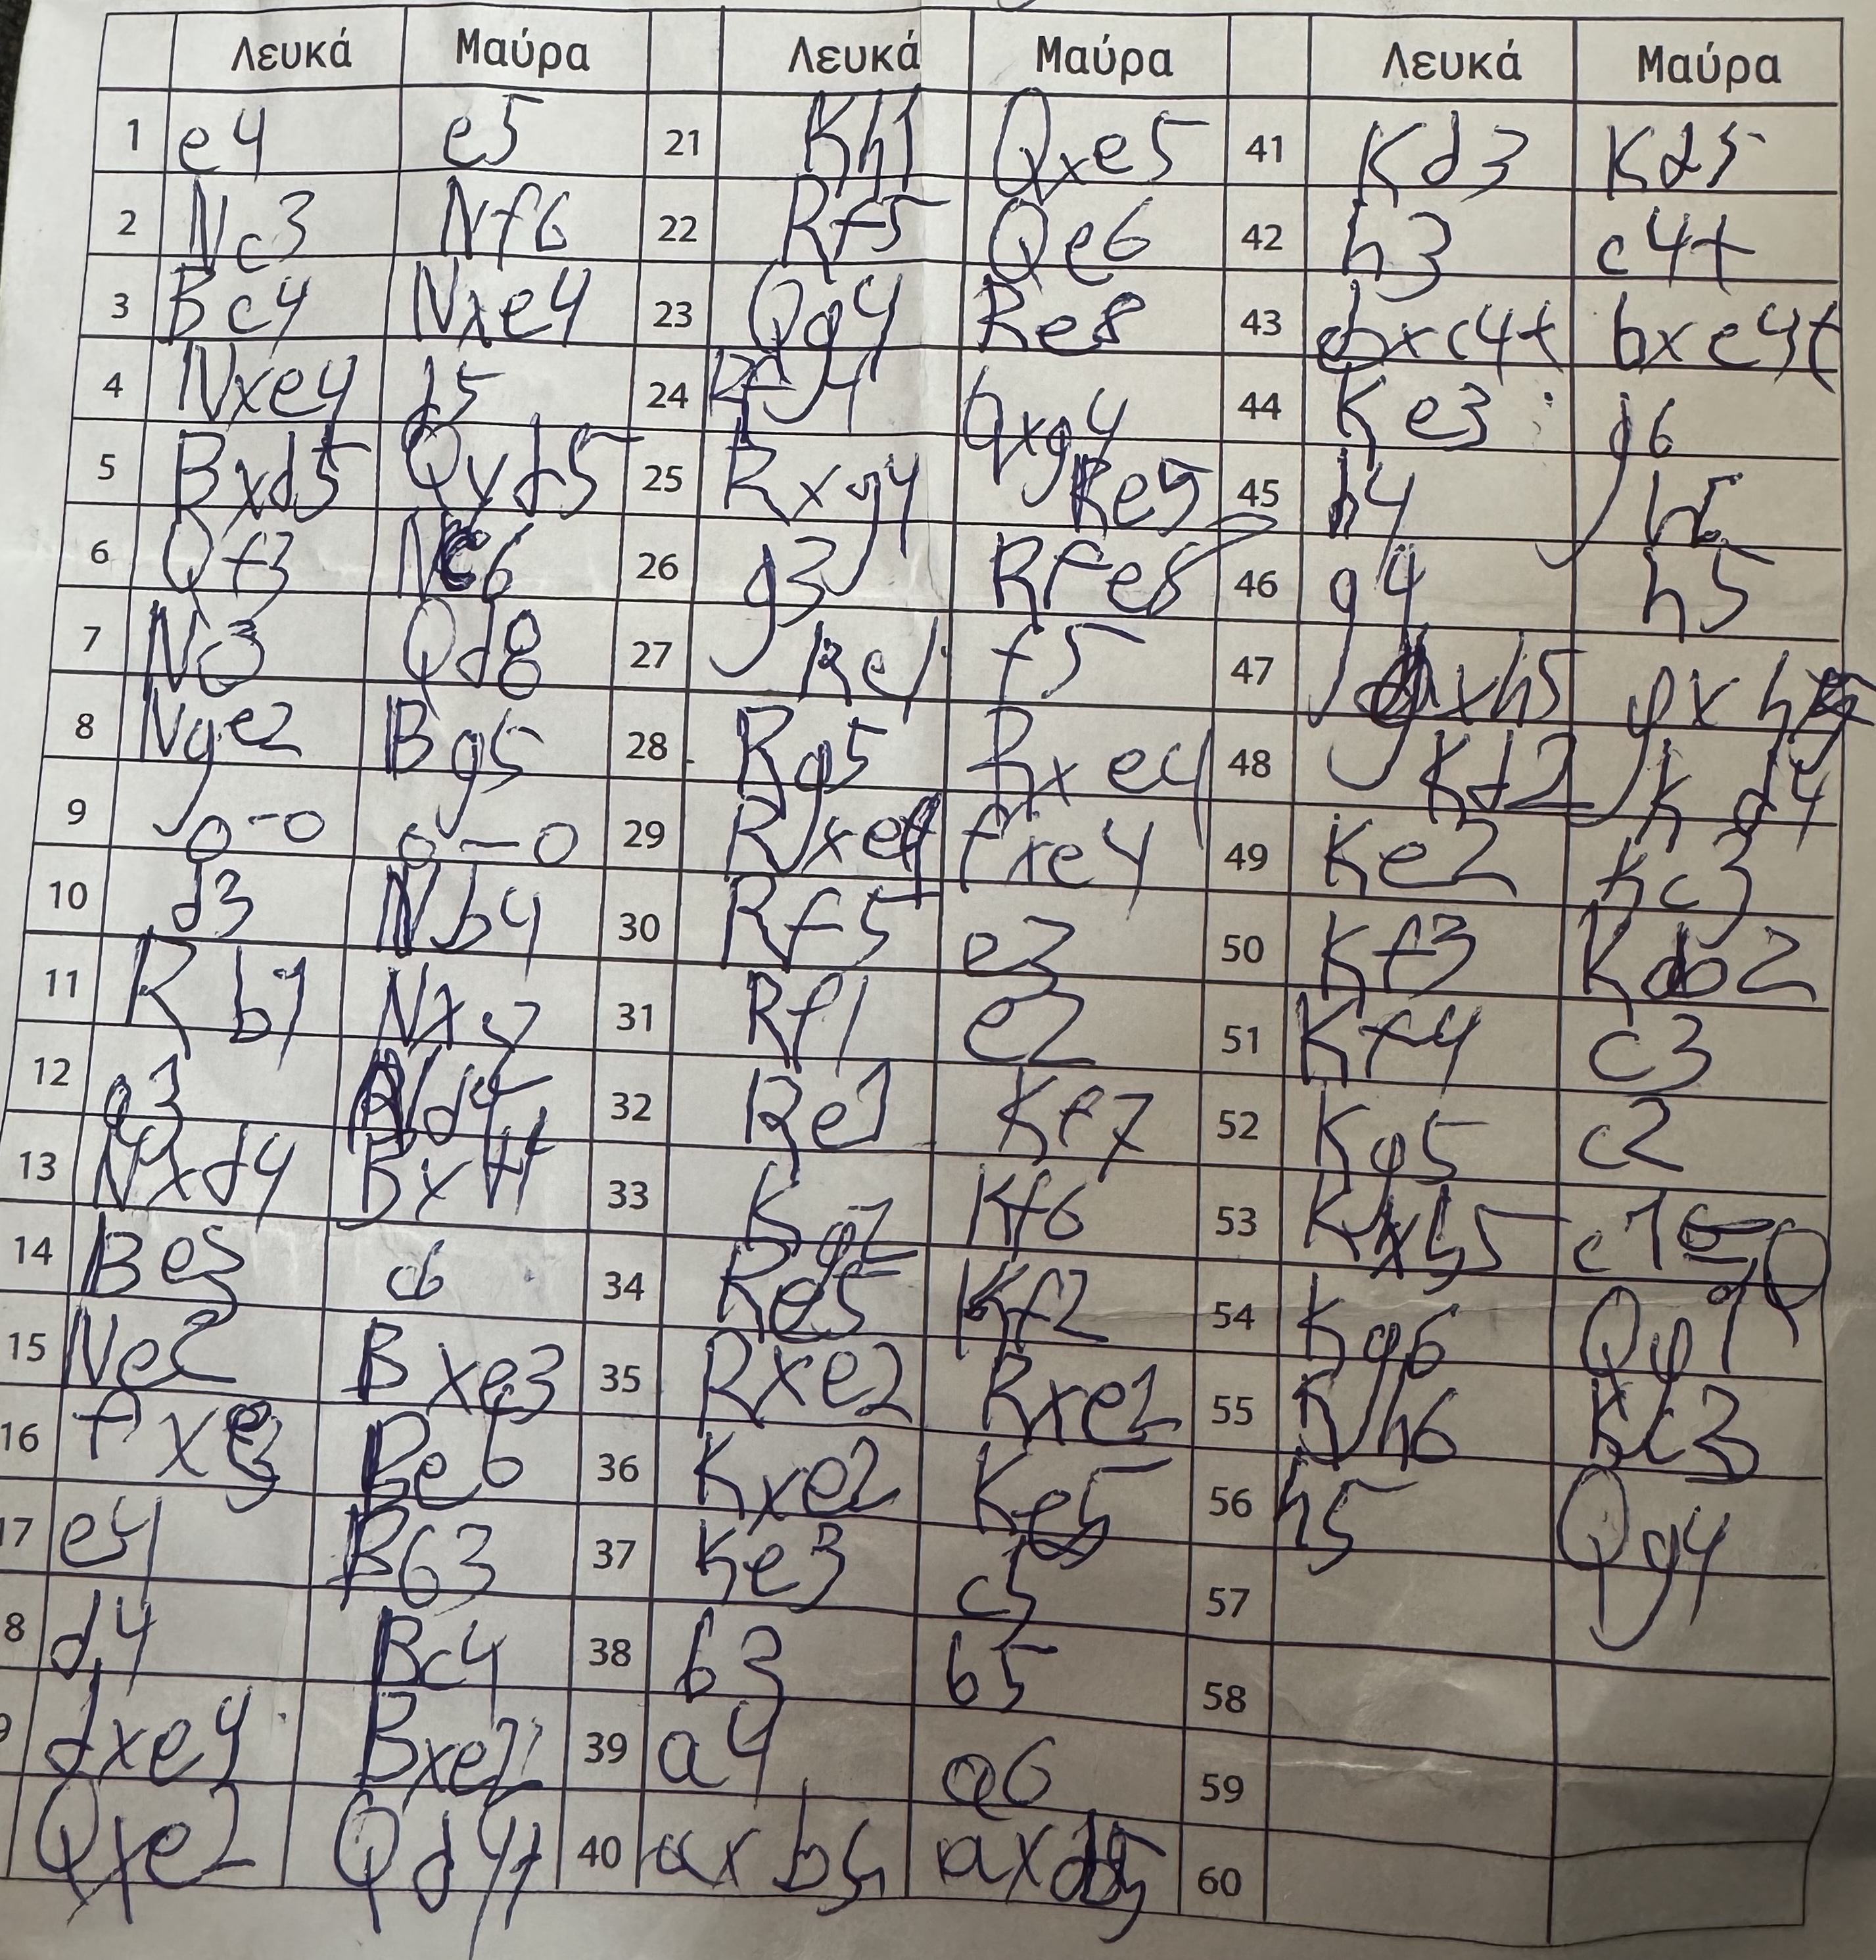 Λευκά Μαύρα Λευκά Μαύρα Λευκά Μαύρα
1 e4 e5 21 Kh1 Qxe5 41 Kd3 Kd5
2 Nc3 Nf6 22 Rf5 Qe6 42 h3 c4+
3 Bc4 Nxe4 23 Qg4 Re8 43 bxc4+ bxc4+
4 Nxe4 d5 24 Qxg4 44 Ke3 g6
5 Bxd5 Qxd5 25 Rxg4 Re5 45 h4
6 Qf3 Nc6 26 g3 Rfe8 46 g4 h5
7 Nc3 Qd8 27 Re1 f5 47 gxh5 gxh5
8 Nge2 Bg5 28 Rg5 Rxe4 48 Kd2 Kd4
9 o-o o-o 29 Rxe4 fxe4 49 Ke2 Kc3
10 d3 Nb4 30 Rf5 e3 50 Kf3 Kb2
11 Rb1 31 Rf1 e2 51 Kf4 c3
12 a3 Nd4 32 Re1 Ke7 52 Kg5 c2
13 Nxd4 33 Kg1 Kf6 53 Kxh5
14 Be3 c6 34 Kf2 54 Kg6 Qg1
15 Ne2 Bxe3 35 Rxe2 Rxe2 55 Kh6 Kc3
16 fxe3 Be6 36 Kxe2 Ke5 56 h5 Qg4
17 e4 Bb3 37 Ke3 c5 57
8 d4 Bc4 38 b3 b5 58
9 dxe4 Bxe2 39 a4 a6 59
Qxe2 Qd4+ 40 axb5 axb5 60